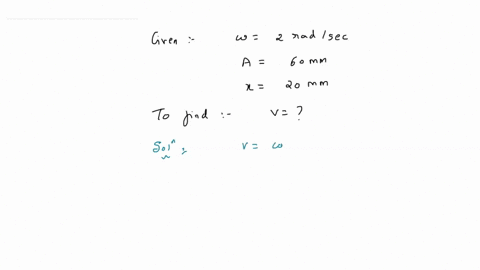 Given :- ω = 2 rad/sec
A = 60 mm
x = 20 mm
To find :- v = ?
Solⁿ : v = ω